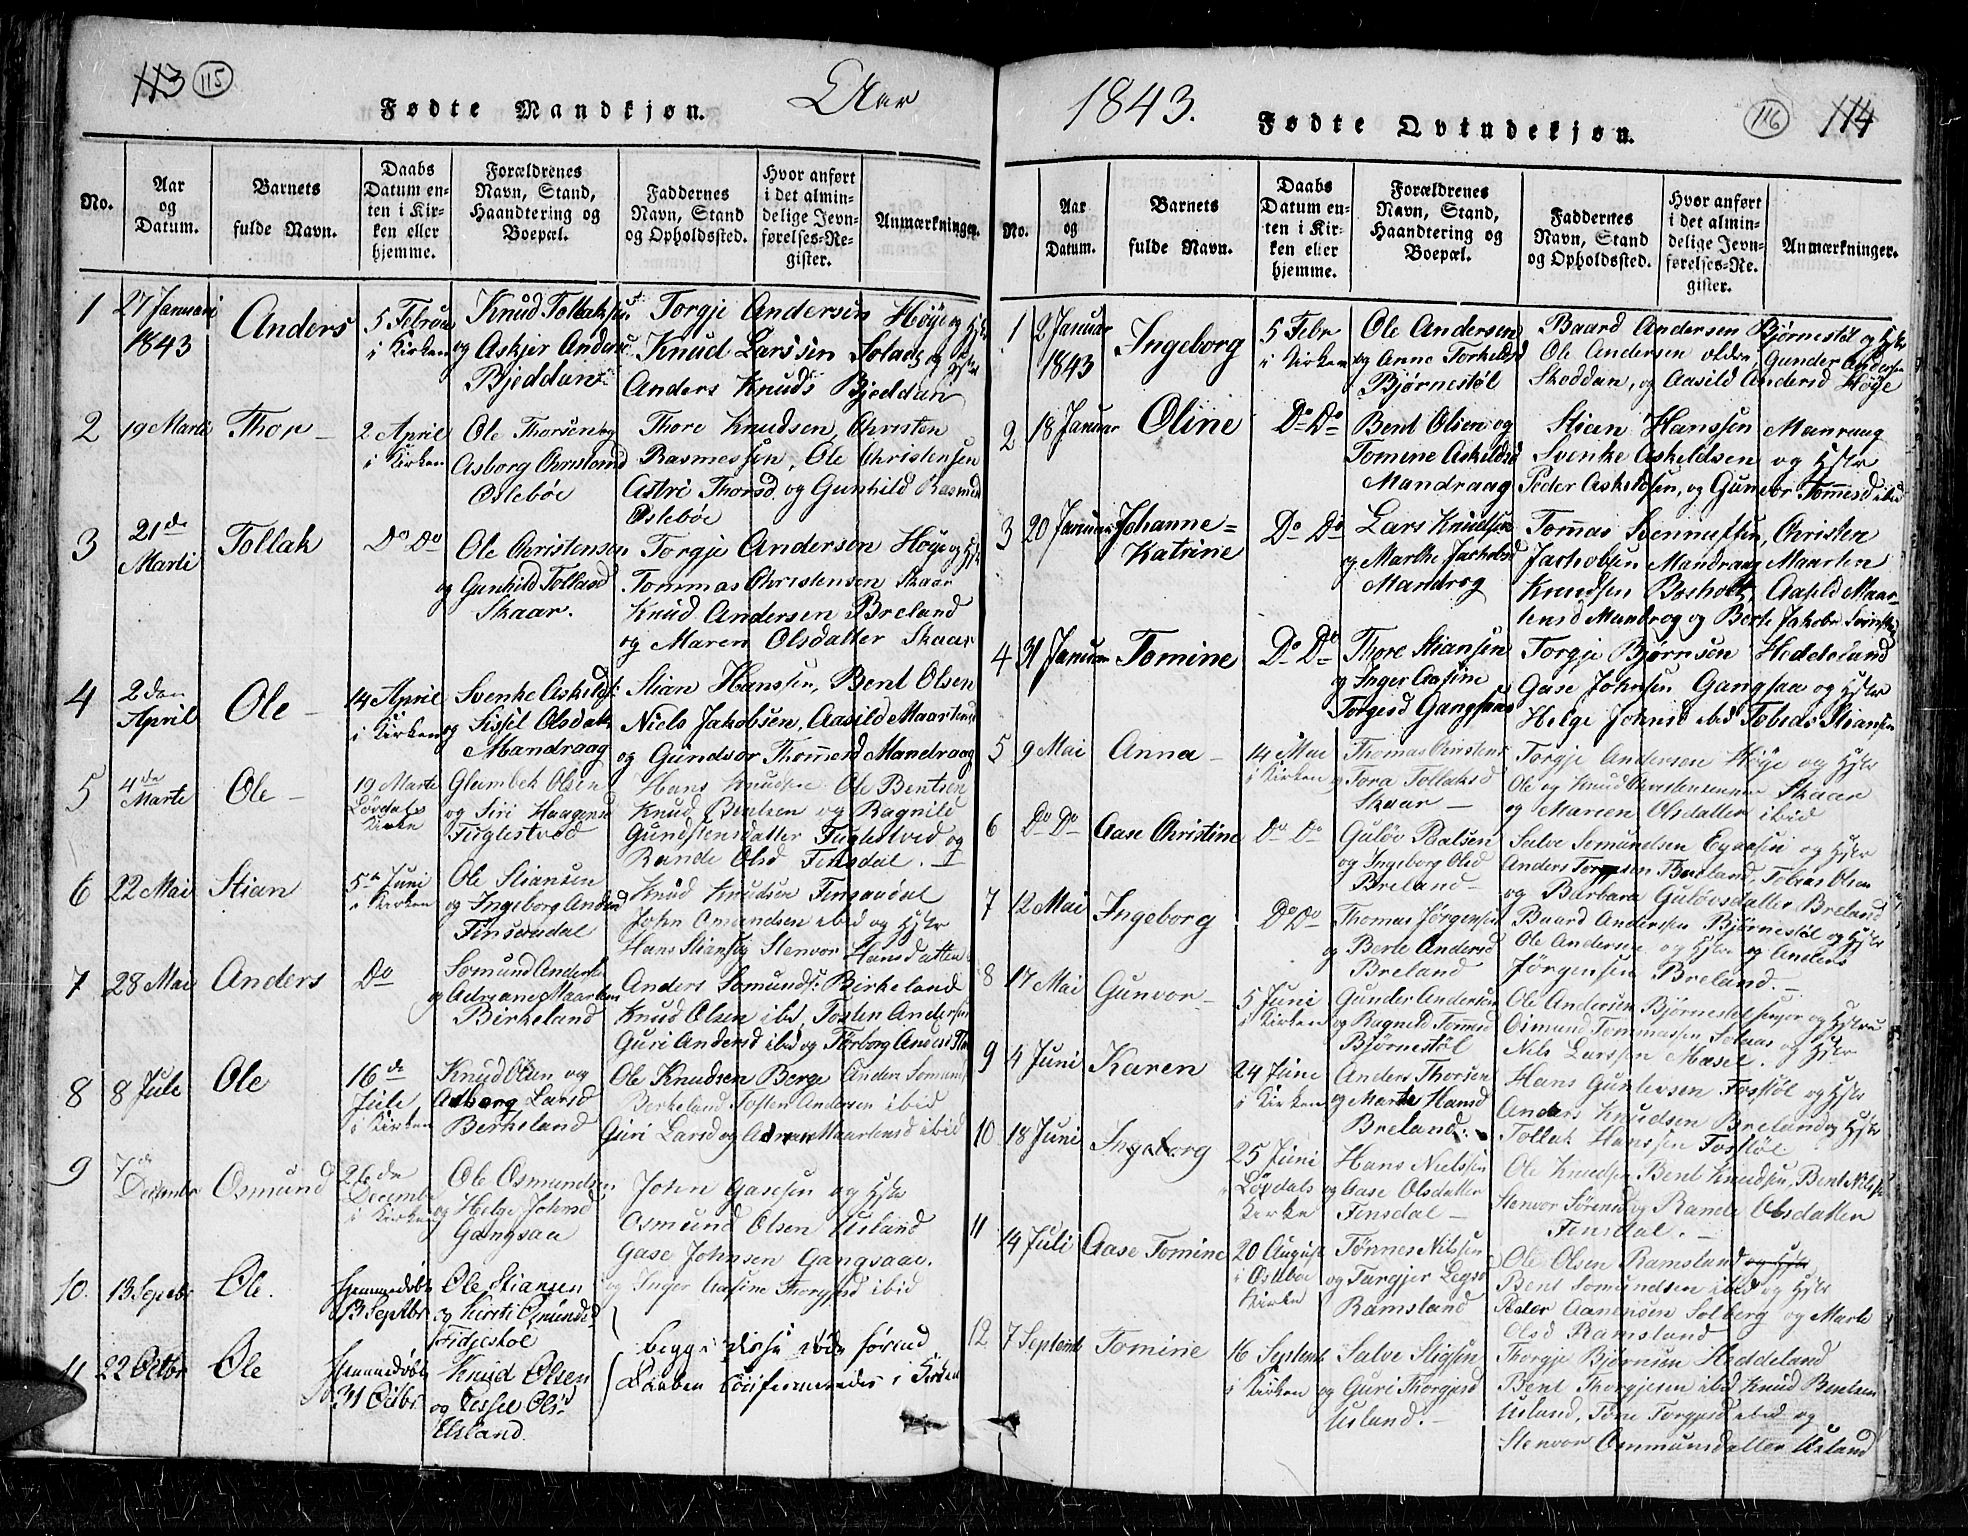 113 115
Aar
Fødte Mandkjøn.
No.
Aar
og
Datum.
Barnets
fulde Navn.
Daabs
Datum en-
ten i Kir-
ken eller
hjemme.
Forældrenes
Navn, Stand,
Haandtering og
Boepæl.
Faddernes
Navn, Stand
og Opholdssted.
Hvor anført
i det almin-
delige Jevn-
førelses-Re-
gister.
Anmærkninger.
1
27 Januari
1843
Anders
5 Februar
i Kirken
Knud Tollaksen
og Askjer Anders
Bjeddan
Torgje Andersen Høye og Hstr
Knud Larssen Solaas og Hstr
Anders Knuds Bjeddan
2
19 Marti
Thor
2 April
i Kirken
Ole Thorsen og
Asborg Christensd
Oslebøe
Thore Knudsen Christen
Rasmessen, Ole Christensen
Astri Thorsd og Gunhild Rasmusd
Oslebøe
3
21de
Marti
Tollak
Do Do
Ole Christensen
og Gunhild Tollaksd
Skaar.
Torgje Andersen Høye og Hstr
Tommas Christensen Skaar
Knud Andersen Breland
og Maren Olsdatter Skaar
4
2den
April
Ole
14 April
i Kirken
Svenke Askelds
og Sissil Olsdatt
Mandraag
Stian Hanssen, Bent Olsen
Niels Jakobsen, Aasild Maartensd
og Gundvor Thommesd Mandraag
5
4de
Marte
Ole
19 Marte
Løvdals
Kirke
Glambek Olsen
og Siri Haagensd
Fuglestved
Hans Knudsen Ole Bentsen
Knud Bentsen og Ragnild
Gundstensdatter Fuglestved og
Rande Olsd Finsdal.
6
22 Mai
Stian
5te Juni
i Kirken
Ole Stiansen
og Ingeborg Andersd
Finsdadal
Knud Knudsen Finsaadal
John Omandsen ibid og Hstr
Hans Stians og Stenvor Hansdatter
7
28 Mai
Anders
Do
Somund Anders
og Adriane Maartens
Birkeland
Anders Somunds: Birkeland
Knud Olsen ibd, Tosten Andersen
Guri Andersd ibid og Torborg Andersd
8
8 Jule
Ole
16de
Jule
i Kirken
Knud Olsen og
Asborg Larsd
Berkeland
Ole Knudsen Berge Anders Somunds
Berkeland Tosten Andersen ibid
Guri Larsd og Adrian Maartensd ibid
9
7de
December
Osmund
26de
Decembr
i Kirken
Ole Osmundsen
og Helge Johnsd
Gangsaa
John Gasesen og Hstr
Osmund Olsen Usland
Gase Johnsen Gangsaae.
og Inger Aasine Thorgjesd ibid
10.
13 Septbr
Ole.
Hjemmedøbt
13 Septbr
Ole Stiansen
og Kirsti Osmundsd
Fidjestøl
11
22 Octbr
Ole
Hjemmedøbt
31 Octbr
Knud Olsen
og Sessel Ols
Usland.
Begge disse døde førend
Daaben confirmeredes i Kirken
1843.
Fødte Qvindekjøn.
116 114
No.
Aar
og
Datum.
Barnets
fulde Navn.
Daabs
Datum en-
ten i Kir-
ken eller
hjemme.
Forældrenes
Navn, Stand,
Haandtering og
Boepæl.
Faddernes
Navn, Stand
og Opholdssted.
Hvor anført
i det almin-
delige Jevn-
førelses-Re-
gister.
Anmærkninger.
1
2 Januar
1843
Ingeborg
5 Febr
i Kirken
Ole Andersen
og Anne Torkelsd
Bjørnestøl
Baard Andersen Bjørnestøl og Hstr
Ole Andersen olden Gunder Andersen
Skoddan, og Aasild Andersd Høye
2
18 Januar
Oline
Do Do
Bent Olsen og
Tomine Askeldsd
Mandraag
Stian Hanssen Manraag
Svenke Askeldsen og Hstr
Peder Askeldsen, og Gunvor Tommesd ibid
3
20 Januar
Johanne=
Katrine
Do Do
Lars Knudsen
og Marthe Jachobsd
Mandrog
Tommas Christen
Jachobsen Mandraag Maarten
Knudsen Aasild Maar-
tensd Mandrog og Berte Jakobs
4
31 Januar
Tomine
Do Do
Thore Stiansen
og Inger Aasine
Torgesd Gangsaas
Torgje Bjørnsen Heddeland
Gase Johnsen Gangsaa og Hstr
Helge Johnsd ibid Tobias Stiansen
5
9 Mai
Anna
14 Mai
i Kirken
Thomas Christens
og Tora Tollaksd
Skaar
Torgje Andersen Høye og Hstr
Ole og Knud Christensenner Skaar
og Mareen Olsdatter ibid
6
Do Do
Aase Christine
Do Do
Guløv Poalsen
og Ingeborg Olsd
Breland
Salve Semundsen og Hstr
Anders Torgesen Breland, Tobias Olsen
og Barbara Guløvsdatter Breland
7
12 Mai
Ingeborg
Do Do
Thomas Jørgensen
og Berte Andersd
Breland
Baard Andersen Bjørnestøl og Hstr
Ole Andersen og Hstr og Anders
Jørgensen Breland.
8
17 Mai
Gunvor
5 Juni
i Kirken
Gunder Andersen
og Ragnild Tommesd
Bjørnestøl
Ole Andersen Bjørnestøl og Hstru
Osmund Tommassen Solaas og Hstr
Nils Larssen Mæsel.
9
4 Juni
Karen
24 Juni
i Kirken
Anders Thorsen
og Marte Hansd
Breland
Hans Guntersen Fosstøl og Hstr
Anders Knudsen Breland og Hstr
Tollak Hanssen Fosstøl
10
18 Juni
Ingeborg
25 Juni
i Løvdals
Kirke
Hans Nielssen
og Aase Olsdatter
Finsdal
Ole Knudsen Bent Knudsen, Bent Nilss
Stenvor Sørensd og Rande Olsdatter
Finsdal.
11
14 Juli
Aase Tomine
20 August
i Oslebøe
Kirke
Tønnes Nilssen
og Turgjer Legsd
Ramsland
Ole Olsen Ramsland og Hstr
Bent Somundsen ibid og Hstr
Peder Aanensen Solberg og Marte
Olsd Ramsland
12
7 Septemb
Tomine
16 Septemb
i Kirken
Salve Stigsen
og Guri Thorgjesd
Usland.
Thorgje Bjørnsen Heddeland
Bent Thorgjesen ibid Knud Bentsen
Usland, Tore Torgjesd ibid og
Stenvor Osmundsdatter Usland